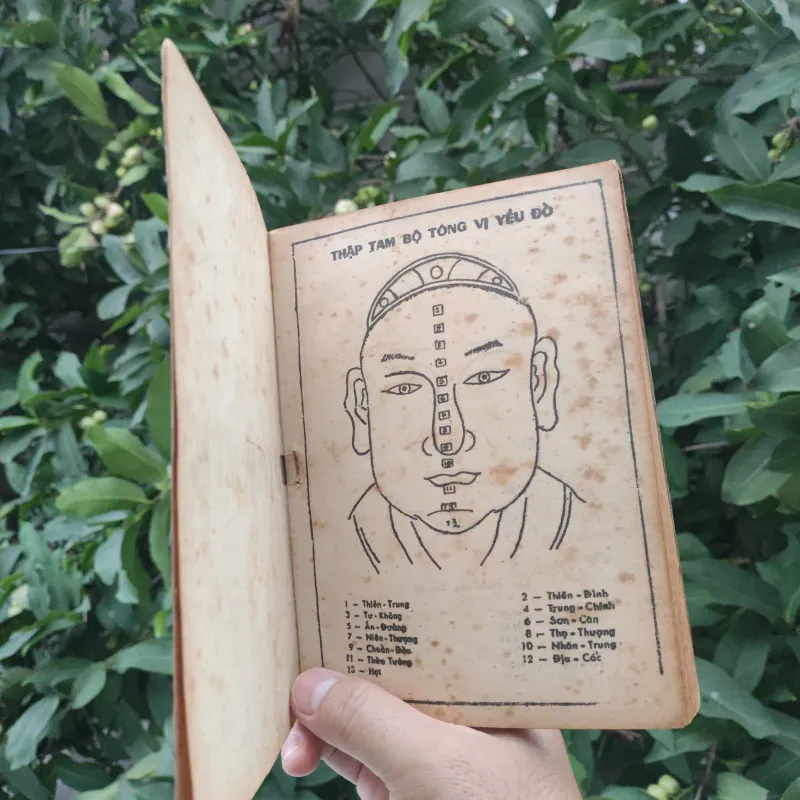 THẬP TAM BỘ TỔNG VỊ YẾU ĐỒ
1
2
3
4
5
6
7
8
9
10
11
12
13
1 — Thiên-Trung
2 — Thiên-Đình
3 — Tư-Không
4 — Trung-Chính
5 — Ấn-Đường
6 — Sơn-Căn
7 — Niên-Thượng
8 — Thọ-Thượng
9 — Chuẩn-Đầu
10 — Nhân-Trung
11 — Thừa Tương
12 — Địa-Các
13 — Hạt